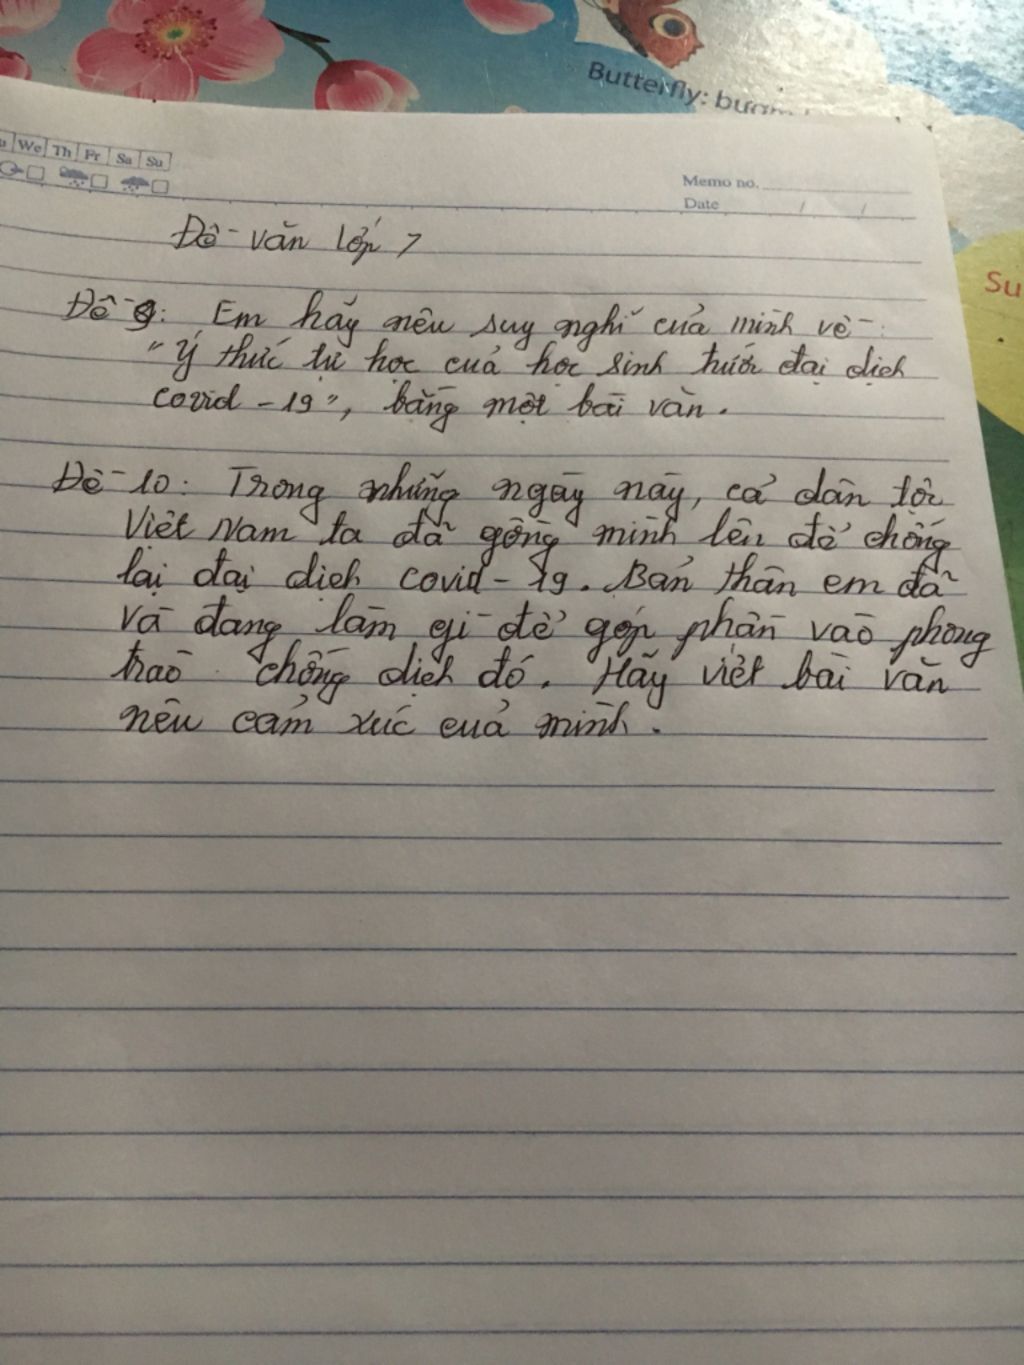 Butterfly: bươm
We Th Fr Sa Su
Memo no.
Date / /
Su
Đề văn lớp 7
Đề 9: Em hãy nêu suy nghĩ của mình về:
"Ý thức tự học của học sinh trước đại dịch
covid - 19", bằng một bài văn.
Đề 10: Trong những ngày này, cả dân tộc
Việt Nam ta đã gồng mình lên để chống
lại đại dịch covid - 19. Bản thân em đã
và đang làm gì để góp phần vào phong
trào chống dịch đó. Hãy viết bài văn
nêu cảm xúc của mình.